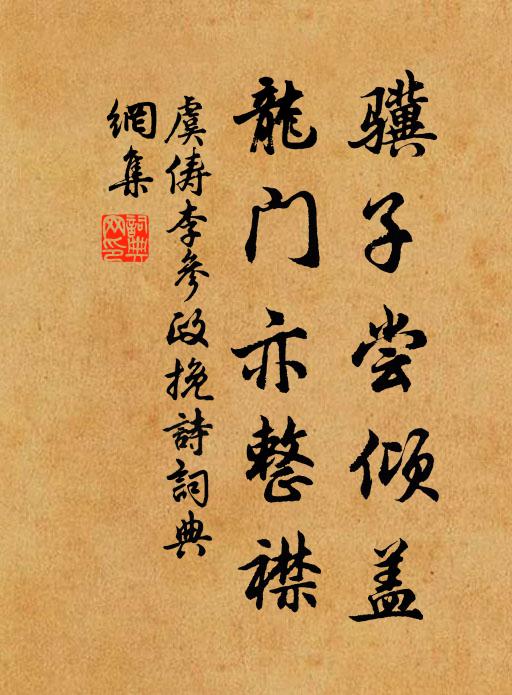 骥子尝倾盖
龍门亦整襟
虞俦李參政挽詩詞典
網集
詞典網印